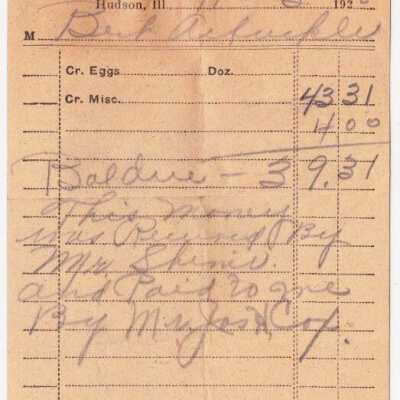 Hudson, Ill 192
M Bert Arbuckle
Cr. Eggs Doz.
Cr. Misc. 43 31
4 00
Baldue - 39.31
This money
was Received By
Mr.
and Paid to me
By Mr Cox.